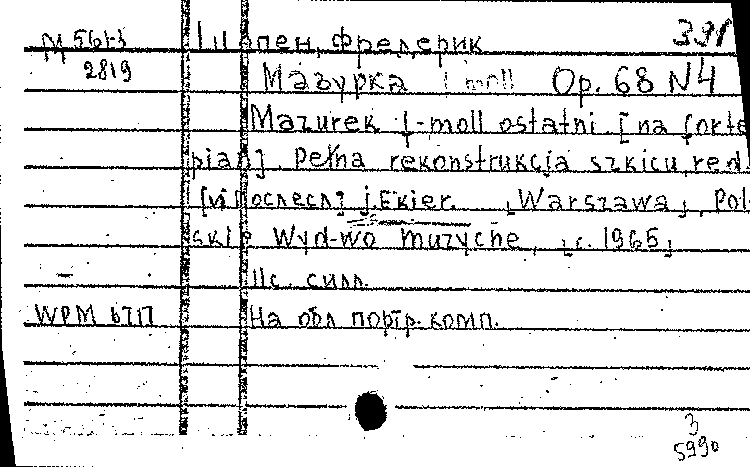 М 5613 Шопен, Фредерик 391
2819 Мазурка f moll Op. 68 N4
Mazurek f-moll ostatni [na forte
pian]. Pełna rekonstrukcja szkicu, red.
[и послесл] J. Ekier. [Warszawa], Pol-
skie Wyd-wo muzyczne, [c. 1965]
11с. силл.
WPM На обл портр. комп.
3
5990